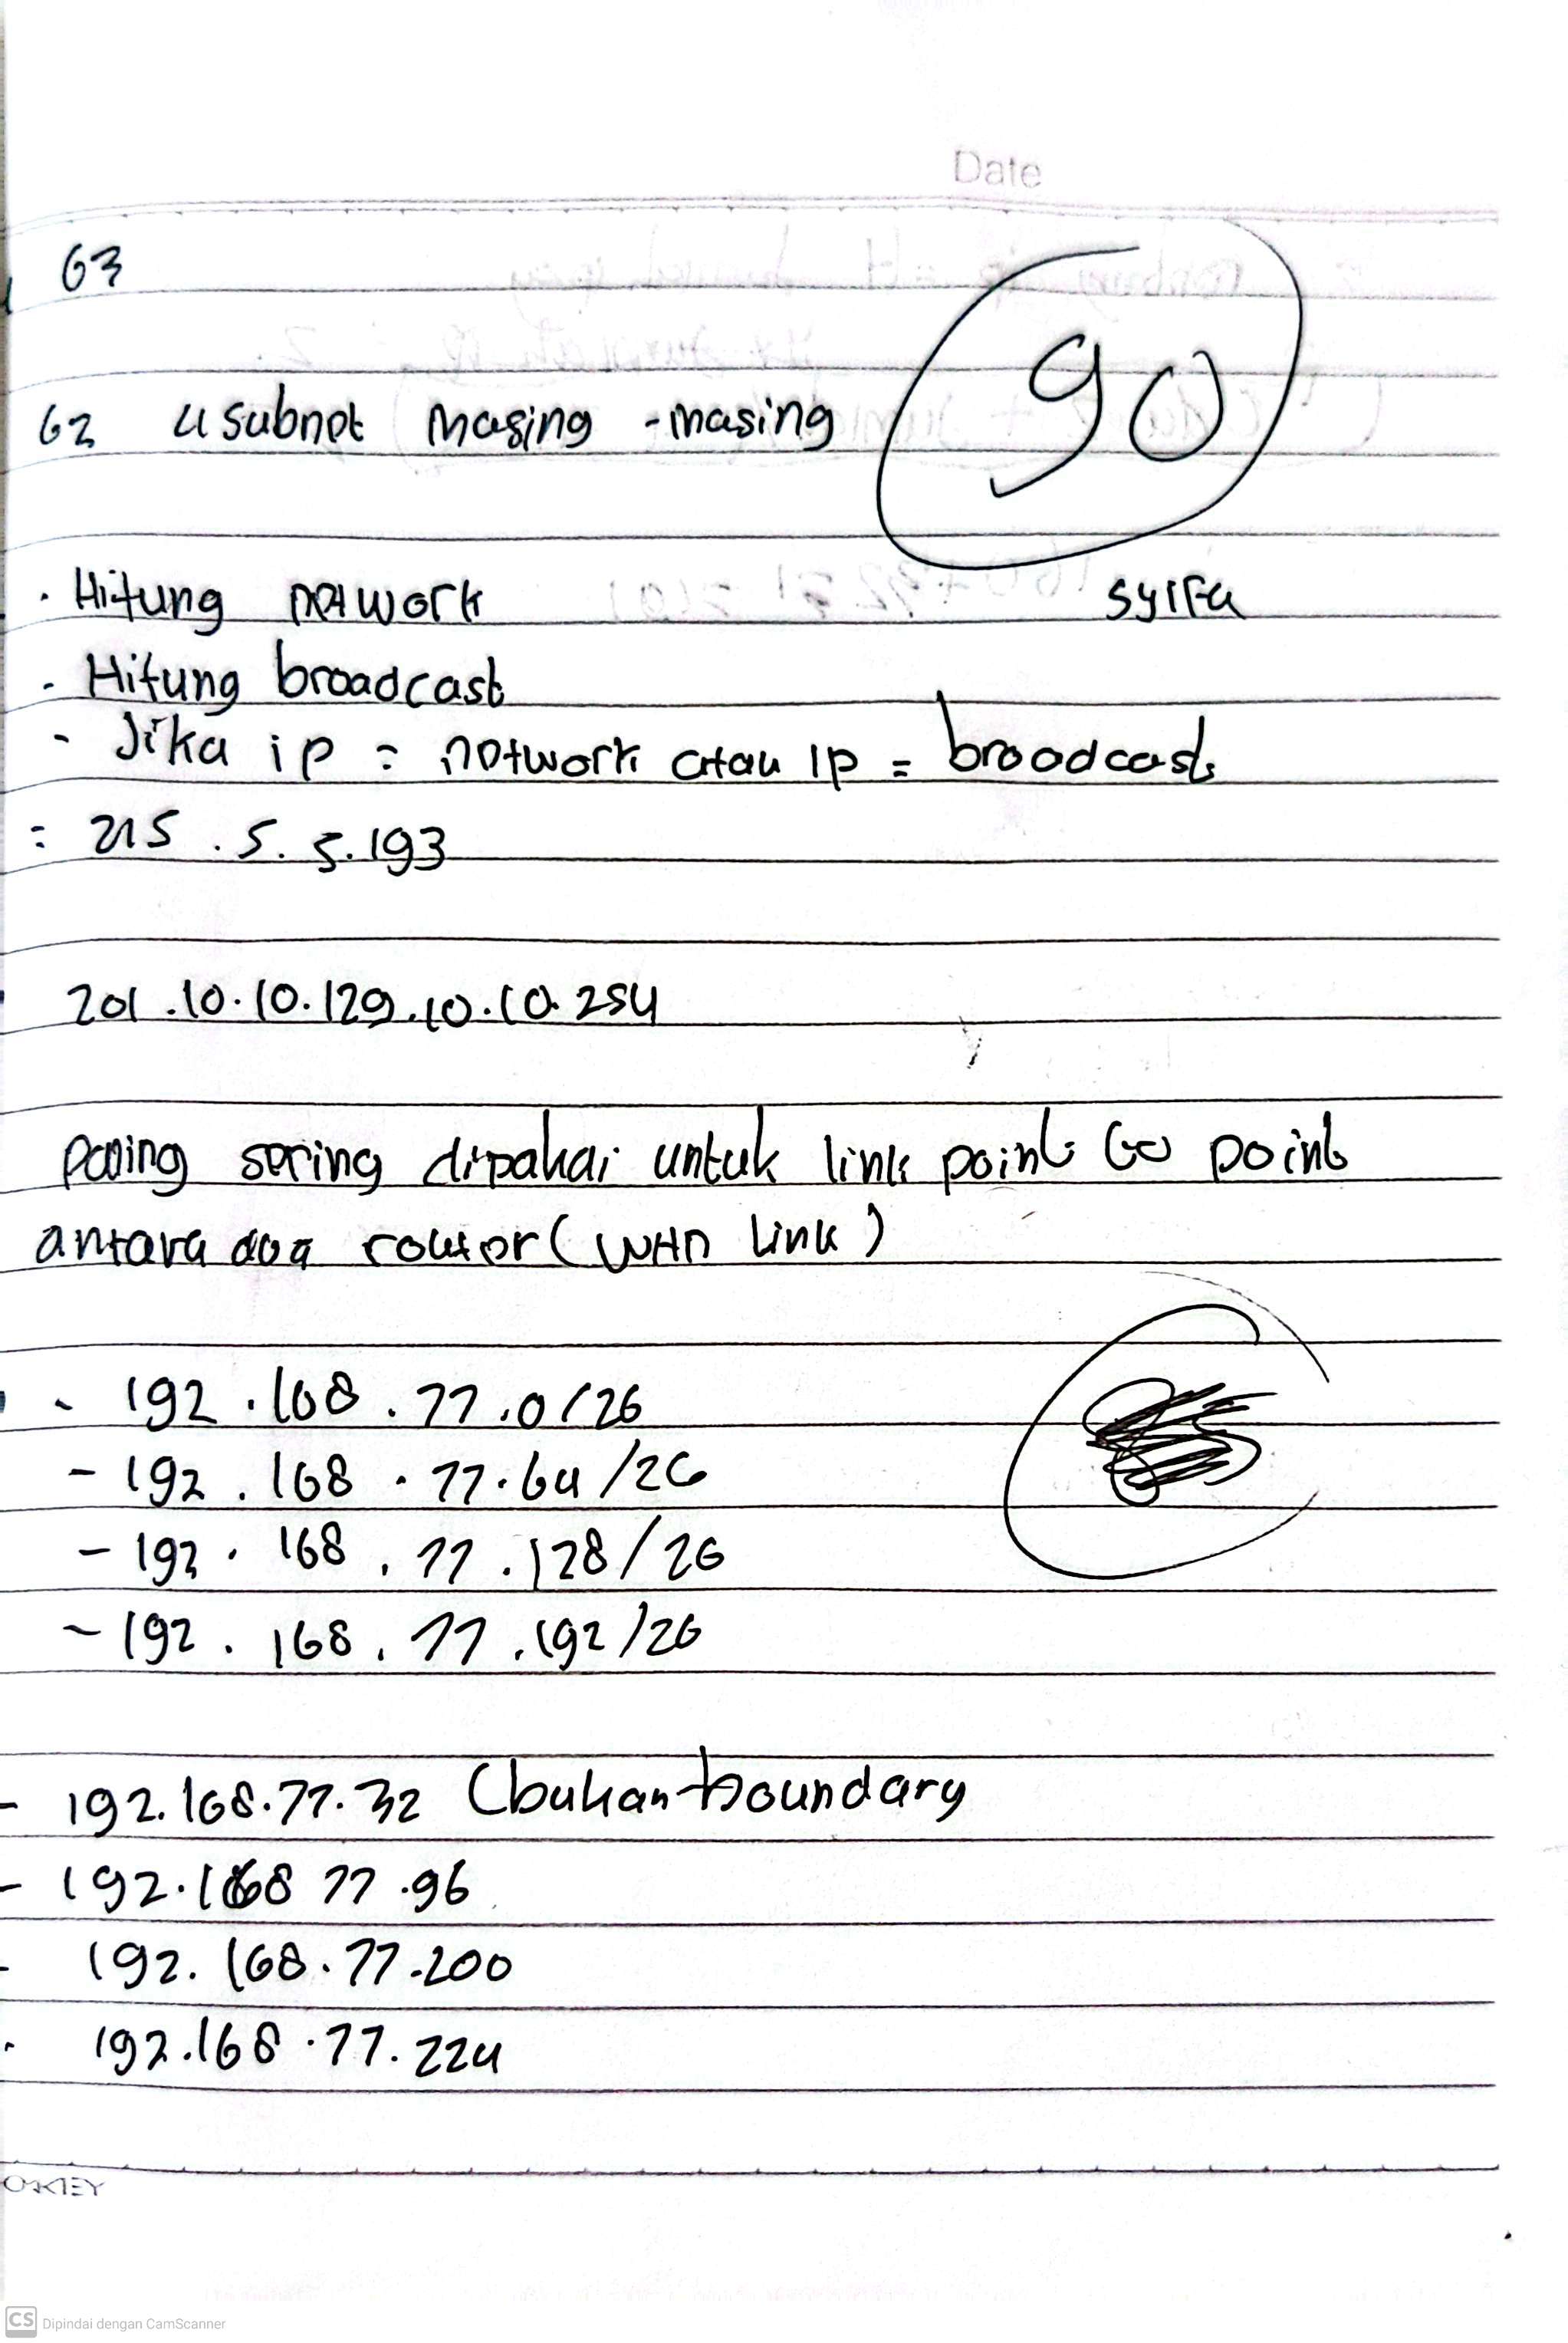 Date
63
62 4 subnet masing - masing
90
• Hitung network
syifa
- Hitung broadcast
- Jika ip = network atau ip = broadcast
= 215 . 5. 5. 193
201 .10.10.129.10.10.254
paling sering dipakai untuk link point to point
antara dua router (WAN link)
- 192 .168 . 77 .0/26
- 192 . 168 . 77.64/26
- 192 . 168 . 77 .128/26
- 192 . 168 . 77 .192/26
- 192.168.77.32 (bukan boundary
- 192.168 77 .96
- 192. 168.77.200
- 192.168 .77. 224
OKEY
CS Dipindai dengan CamScanner